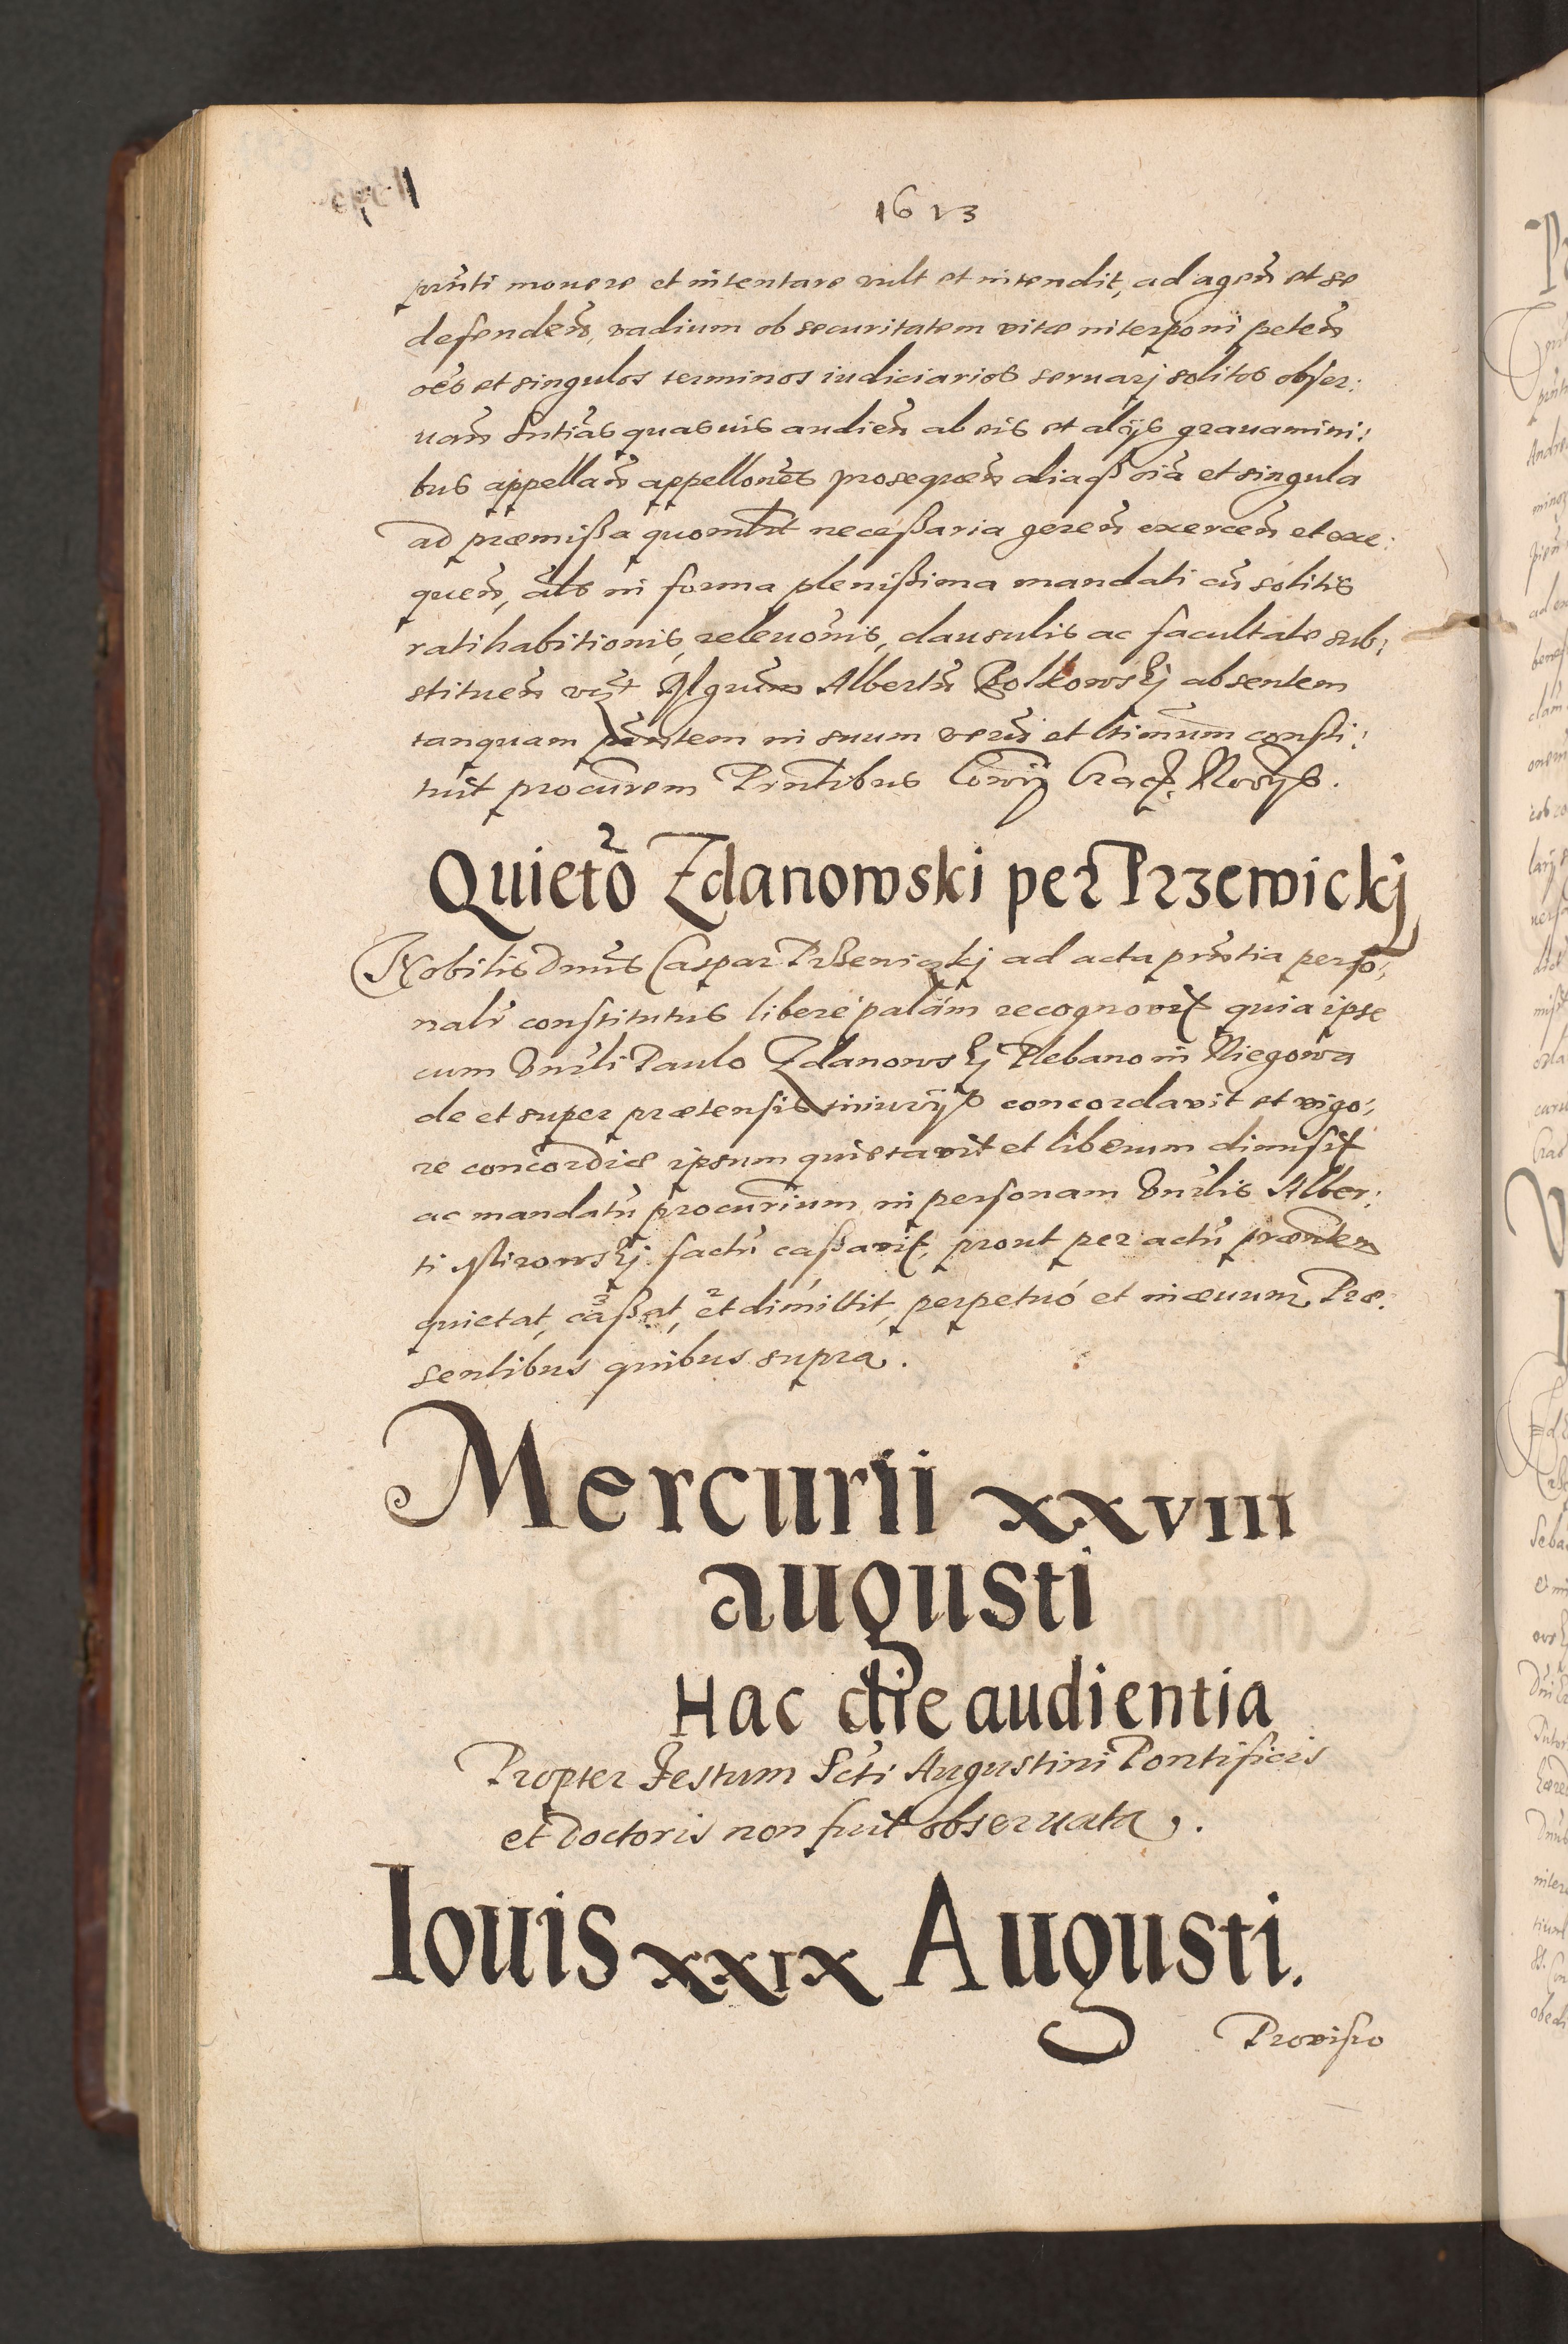 1613
pn̄ti mouere et intentare vult et intendit, ad agen̄ et se
defenden̄, vadium ob securitatem vitæ interponi peten̄
oēs et singulos terminos iudiciarios seruarj solitos obser:
uan̄ sn̄tias quasuis audien̄ ab eis et alijs grauamini:
bus appellan̄ appellōnes prosequen̄ aliaqß oīa et singula
ad præmißa quomlt neceßaria geren̄ exercen̄ et exe:
quen̄, als in forma plenißima mandati cū solitis
ratihabitionis, releuōnis, clausulis ac facultate sub:
stituen̄ Albertū Polkowskj absentem
tanquam pn̄tem in suum verū et ltimum consti:
tuit procurem Pn̄tibus
Quietō Zdanowski per Przewickj
Nobilis Dnūs Caspar Przewickj ad acta pn̄tia perso:
nalr constitutus liberè palàm recognovit quia ipse
cum Vnrli Paulo Zdanowskj Plebano in Niegowa
de et super prætensis iniurijs concordavit et vigo:
re concordiæ ipsum quietavit et liberum dimisit
ac mandatū procurium in personam Vnrlis Alber:
ti Mirowskj factū caßavit, prout per actū præntem
quietat, caßat, et dimittit, perpetuò et in æuum Præ:
sentibus quibus supra.
Mercurii XXVIII
augusti
Hac die audientia
Propter Festum Scti Augustini Pontificis
et Doctoris non fuit obseruata.
Iouis XXIX Augusti.
Provisio